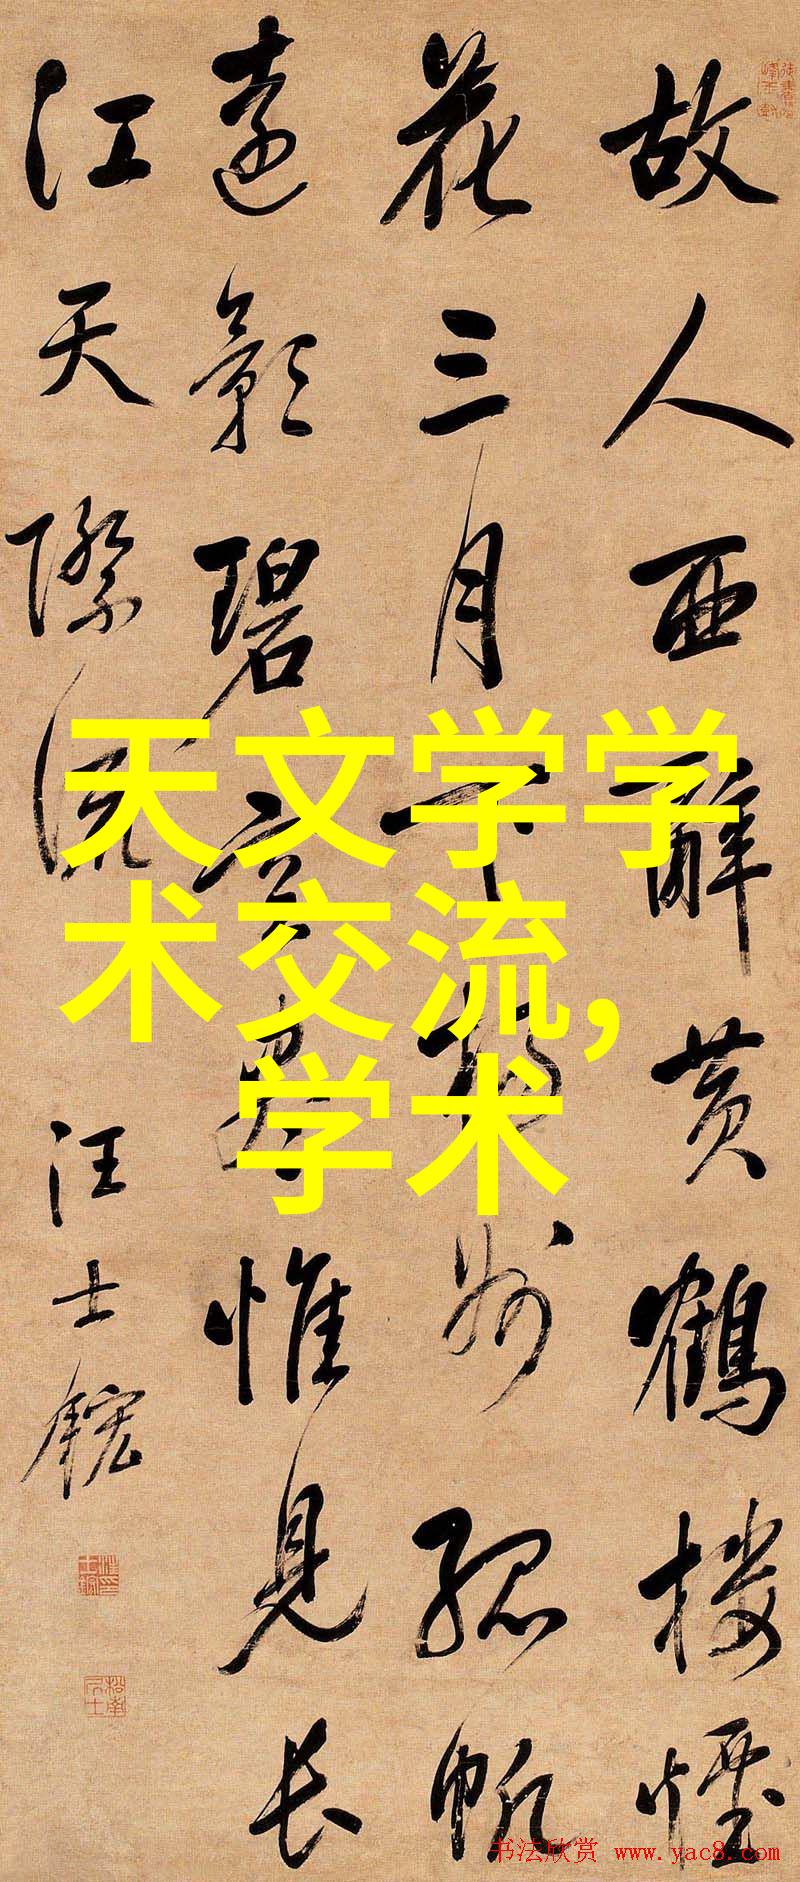 故人西辭黄鶴樓煙
花三月下揚州孤帆
遠影碧空盡惟見長
江天際流
汪士鋐
天文学学
术交流,
学术
书法欣赏 www.yac8.com